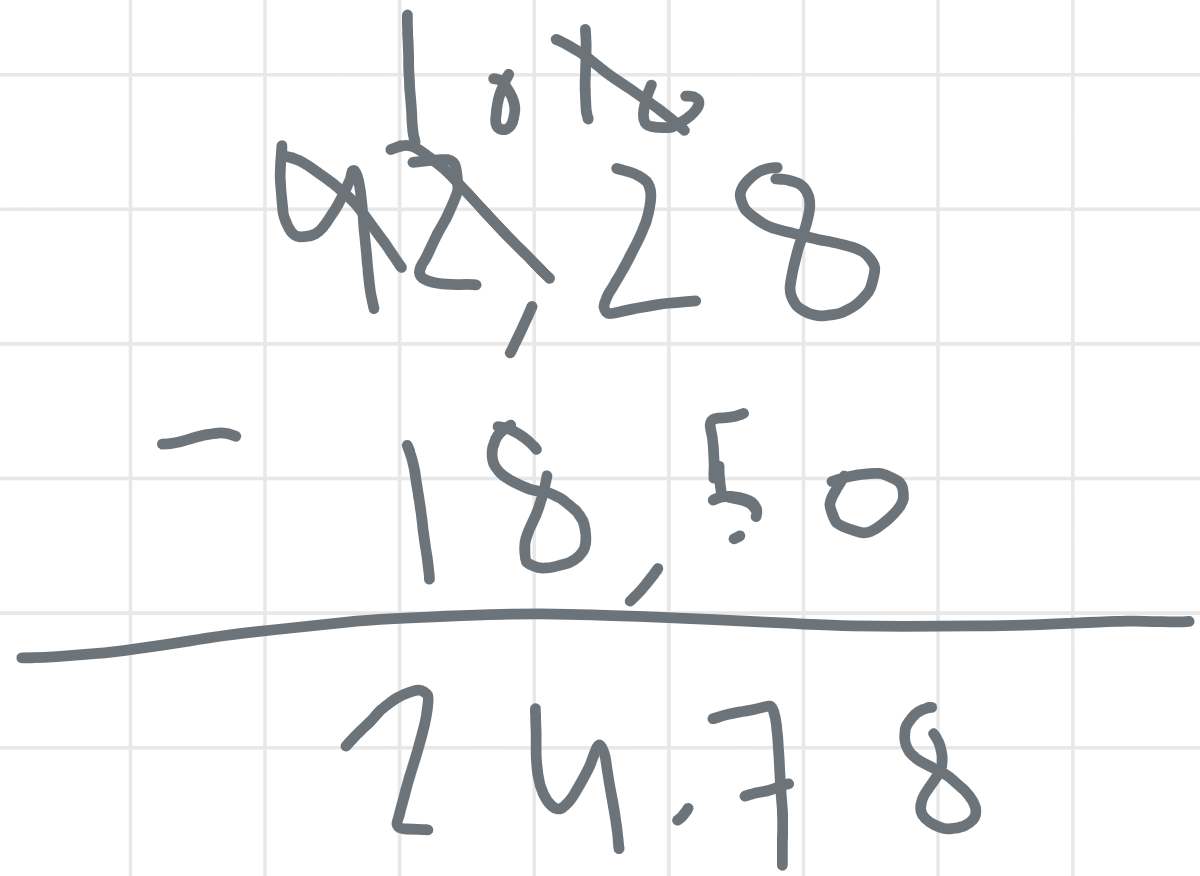 10 10
42,28
- 18,50
24.78